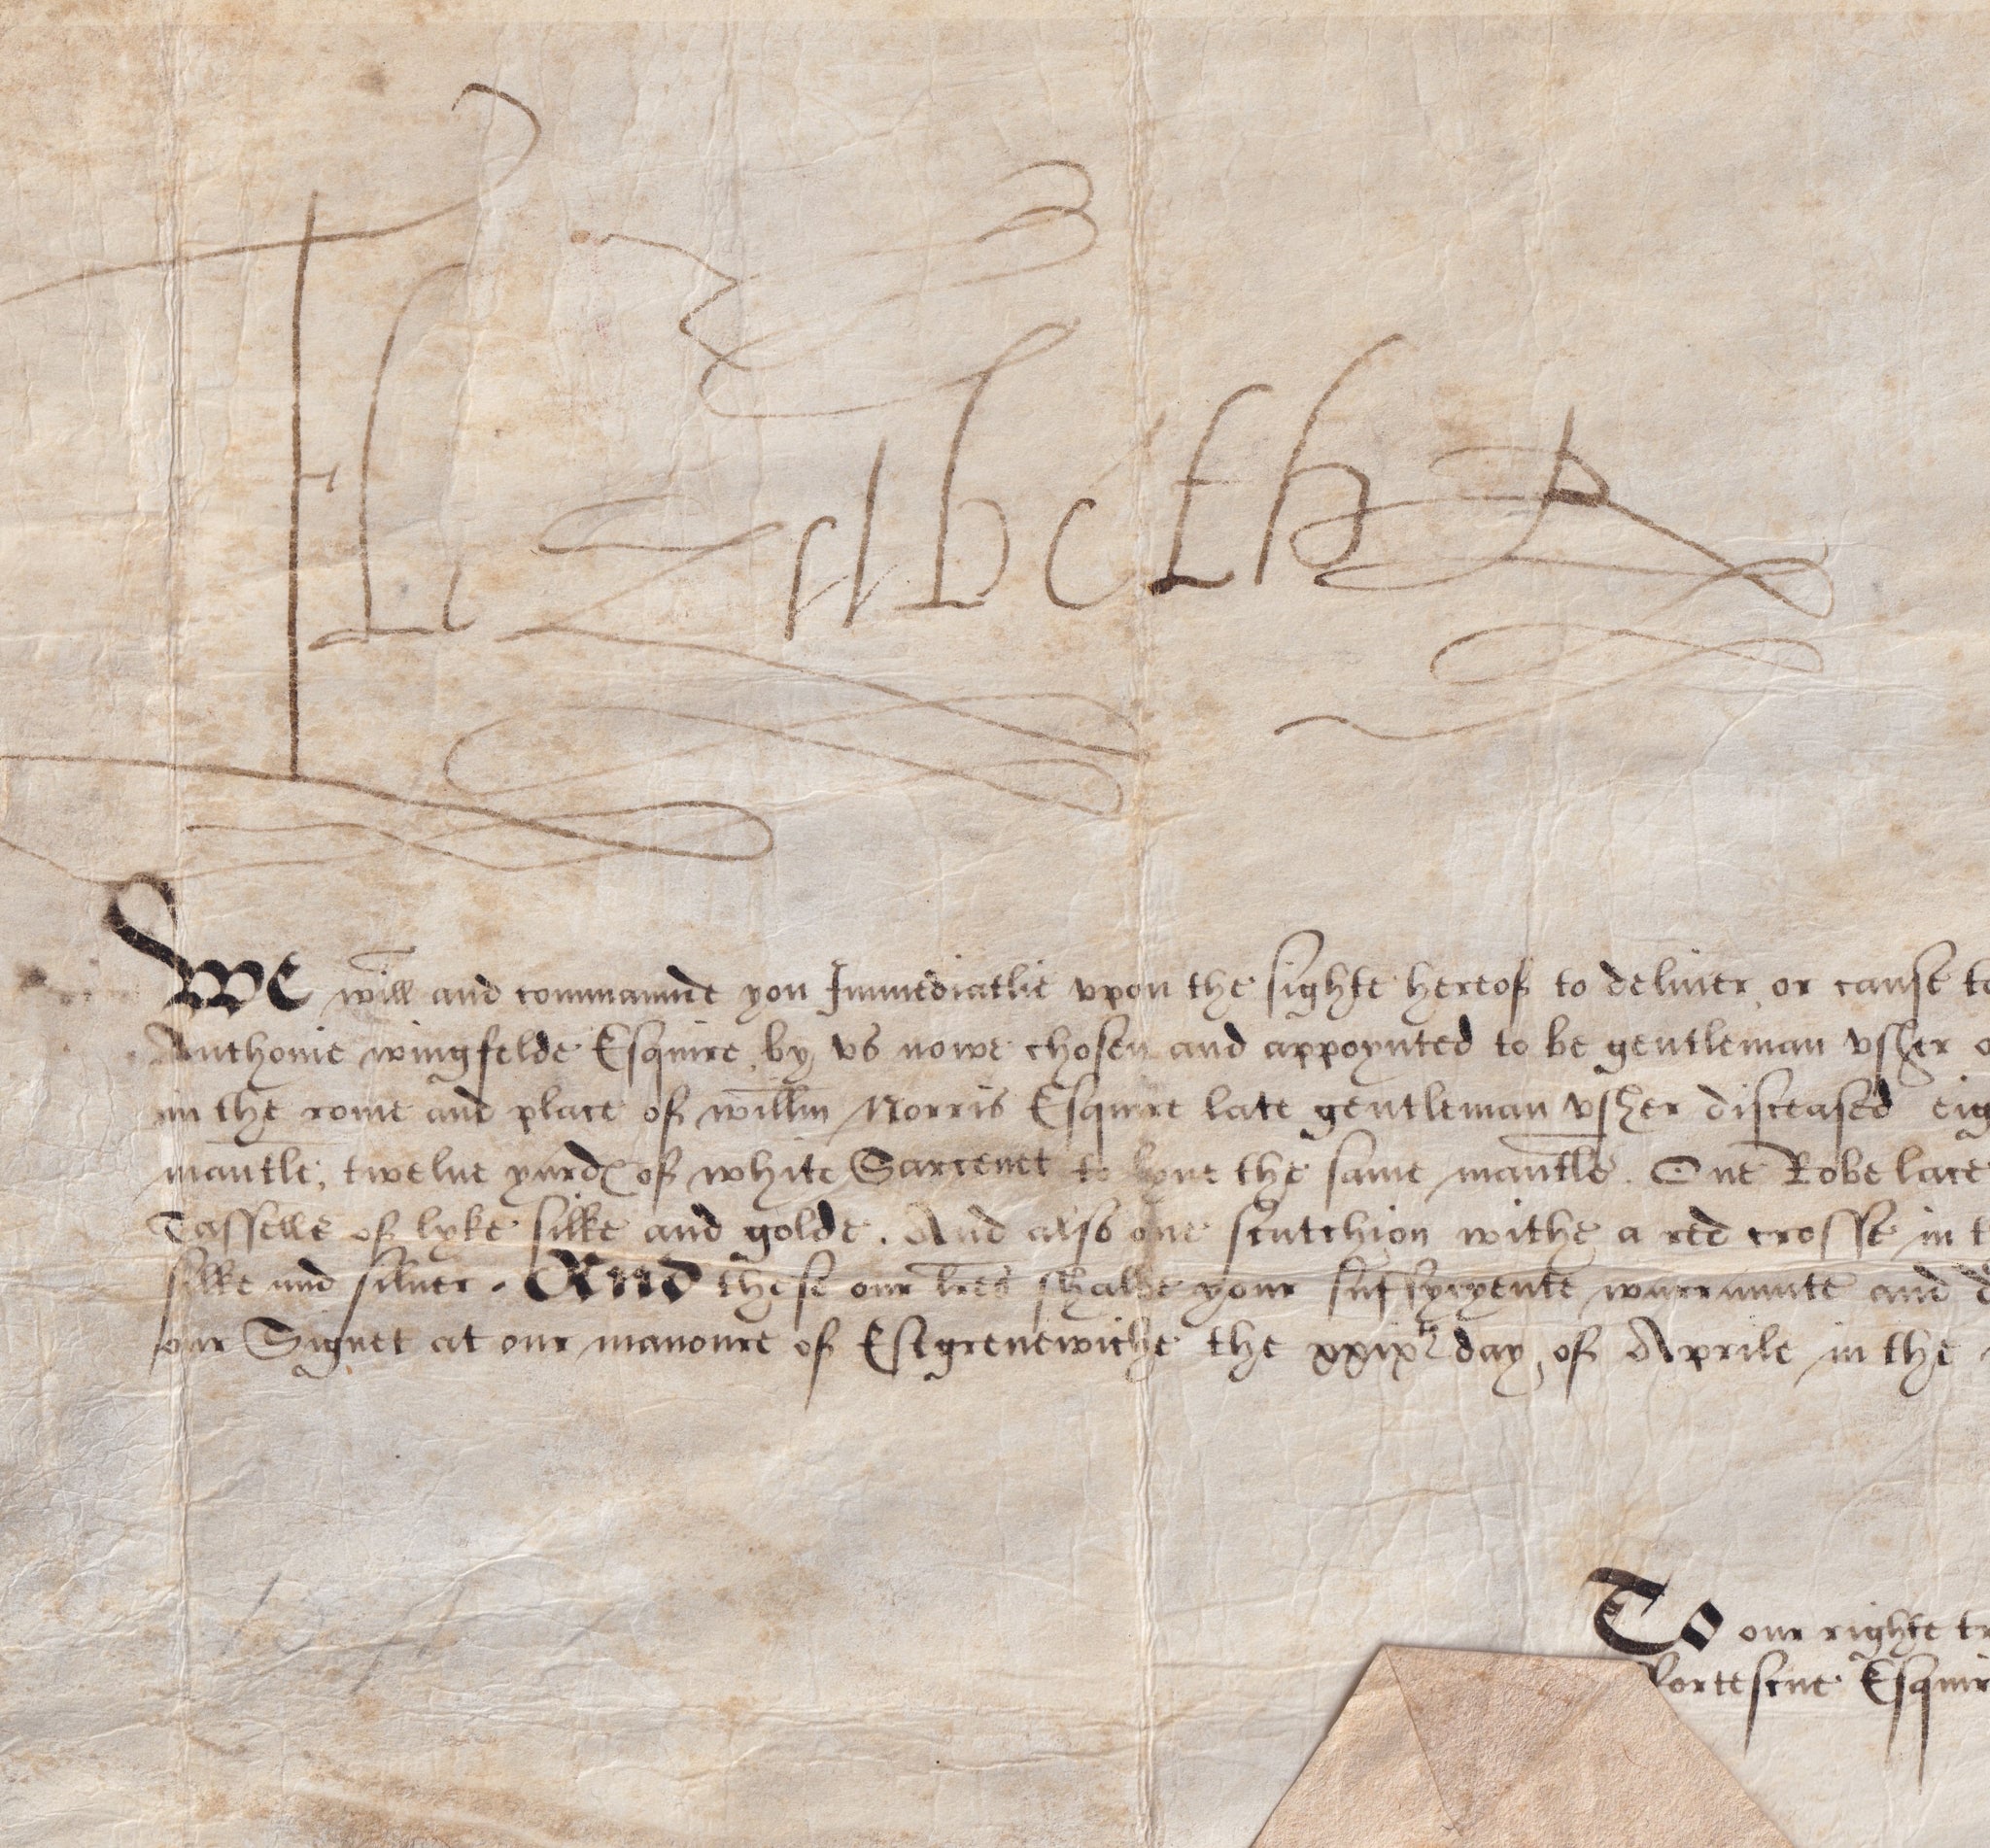 Elizabeth R
We will and commaunde you Immediatlie vpon the sighte hereof to deliuer or cause to
Anthonie wingfelde Esquire by vs nowe chosen and appoynted to be gentleman vsher o
in the rome and place of willm Norris Esquire late gentleman vsher disceased eig
mantle, twelue yards of white Sarcenet to lyne the same mantle. One Robe lace
Tasselle of lyke silke and golde. And also one scutchion withe a red crosse in t
silke and siluer. And these our lres shalbe your suffycyente warraunte and d
our Signet at our manoure of Estgrenewiche the xxixth day of Aprile in the
To our righte tr
Fortescue Esquir